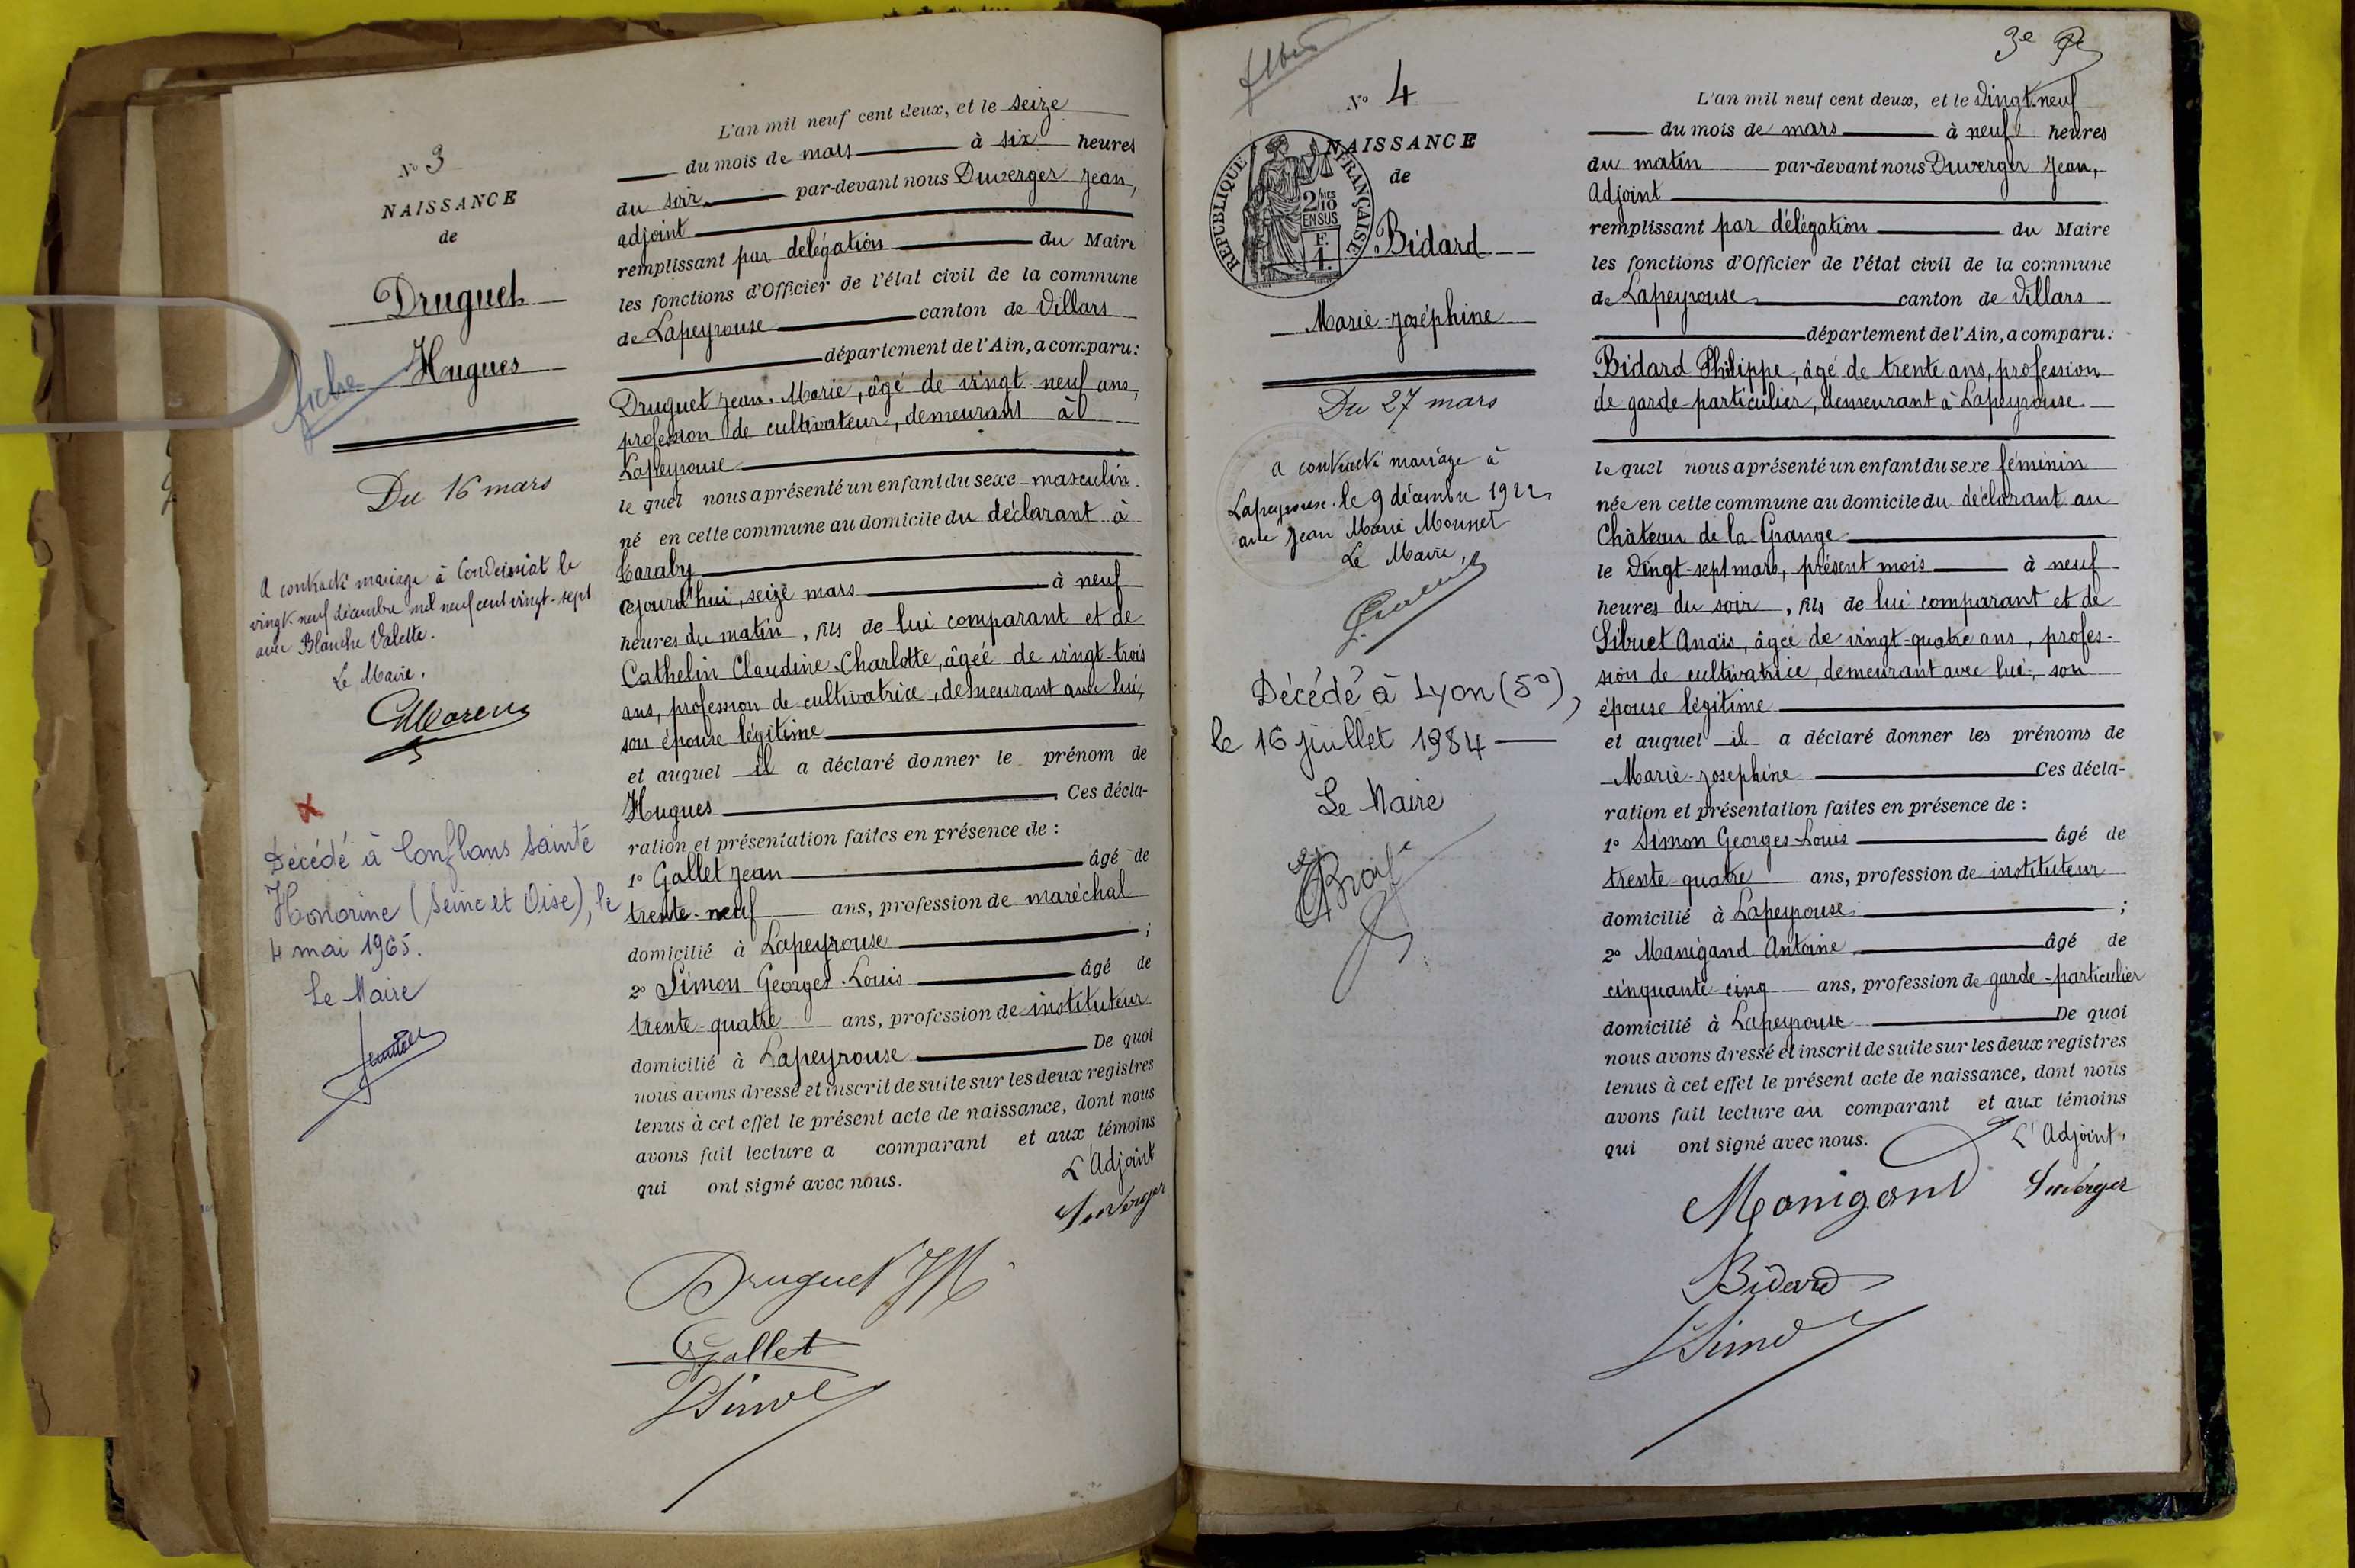 N° 3
NAISSANCE
de
Druguet
Hugues
fiche
Du 16 mars
a contracté mariage à Condeissiat le
vingt-neuf décembre mil neuf cent vingt-sept
avec Blanche Valette.
Le Maire,
Décédé à Conflans Sainte
Honorine (Seine et Oise), le
4 mai 1965.
Le Maire
L'an mil neuf cent deux, et le seize
du mois de mars à six heures
du soir par-devant nous Duverger Jean,
adjoint
remplissant par délégation du Maire
les fonctions d'Officier de l'état civil de la commune
de Lapeyrouse canton de Villars
département de l'Ain, a comparu:
Druguet Jean-Marie, âgé de vingt-neuf ans,
profession de cultivateur, demeurant à
Lapeyrouse
le quel nous a présenté un enfant du sexe masculin
né en cette commune au domicile du déclarant à
Caraby
ajourd'hui, seize mars à neuf
heures du matin, fils de lui comparant et de
Cathelin Claudine-Charlotte, âgée de vingt-trois
ans, profession de cultivatrice, demeurant avec lui,
son épouse légitime
et auquel il a déclaré donner le prénom de
Hugues Ces décla-
ration et présentation faites en présence de :
1° Gallet Jean âgé de
trente-neuf ans, profession de maréchal
domicilié à Lapeyrouse ;
2° Simon Georges-Louis âgé de
trente-quatre ans, profession de instituteur
domicilié à Lapeyrouse De quoi
nous avons dressé et inscrit de suite sur les deux registres
tenus à cet effet le présent acte de naissance, dont nous
avons fait lecture a comparant et aux témoins
qui ont signé avec nous.
L'Adjoint
Duverger
Druguet JM
Gallet
Simon
3e
N° 4
NAISSANCE
de
RÉPUBLIQUE FRANÇAISE
2/10 EN SUS
Bidard
Marie-Joséphine
Du 27 mars
a contracté mariage à
Lapeyrouse le 9 décembre 1922
avec Jean Marie Monnet
Le Maire,
Décédé à Lyon (5°),
le 16 juillet 1984
Le Maire
L'an mil neuf cent deux, et le vingt-neuf
du mois de mars à neuf heures
du matin par-devant nous Duverger Jean,
Adjoint
remplissant par délégation du Maire
les fonctions d'Officier de l'état civil de la commune
de Lapeyrouse canton de Villars
département de l'Ain, a comparu:
Bidard Philippe, âgé de trente ans, profession
de garde-particulier, demeurant à Lapeyrouse
le quel nous a présenté un enfant du sexe féminin
née en cette commune au domicile du déclarant au
Château de la Grange
le vingt-sept mars, présent mois à neuf
heures du soir, fils de lui comparant et de
Sibuet Anaïs, âgée de vingt-quatre ans, profes-
sion de cultivatrice, demeurant avec lui, son
épouse légitime
et auquel il a déclaré donner les prénoms de
Marie-Josephine Ces décla-
ration et présentation faites en présence de :
1° Simon Georges-Louis âgé de
trente-quatre ans, profession de instituteur
domicilié à Lapeyrouse ;
2° Manigand Antoine âgé de
cinquante-cinq ans, profession de garde-particulier
domicilié à Lapeyrouse De quoi
nous avons dressé et inscrit de suite sur les deux registres
tenus à cet effet le présent acte de naissance, dont nous
avons fait lecture au comparant et aux témoins
qui ont signé avec nous.
L'Adjoint,
Manigand
Duverger
Bidard
Simon